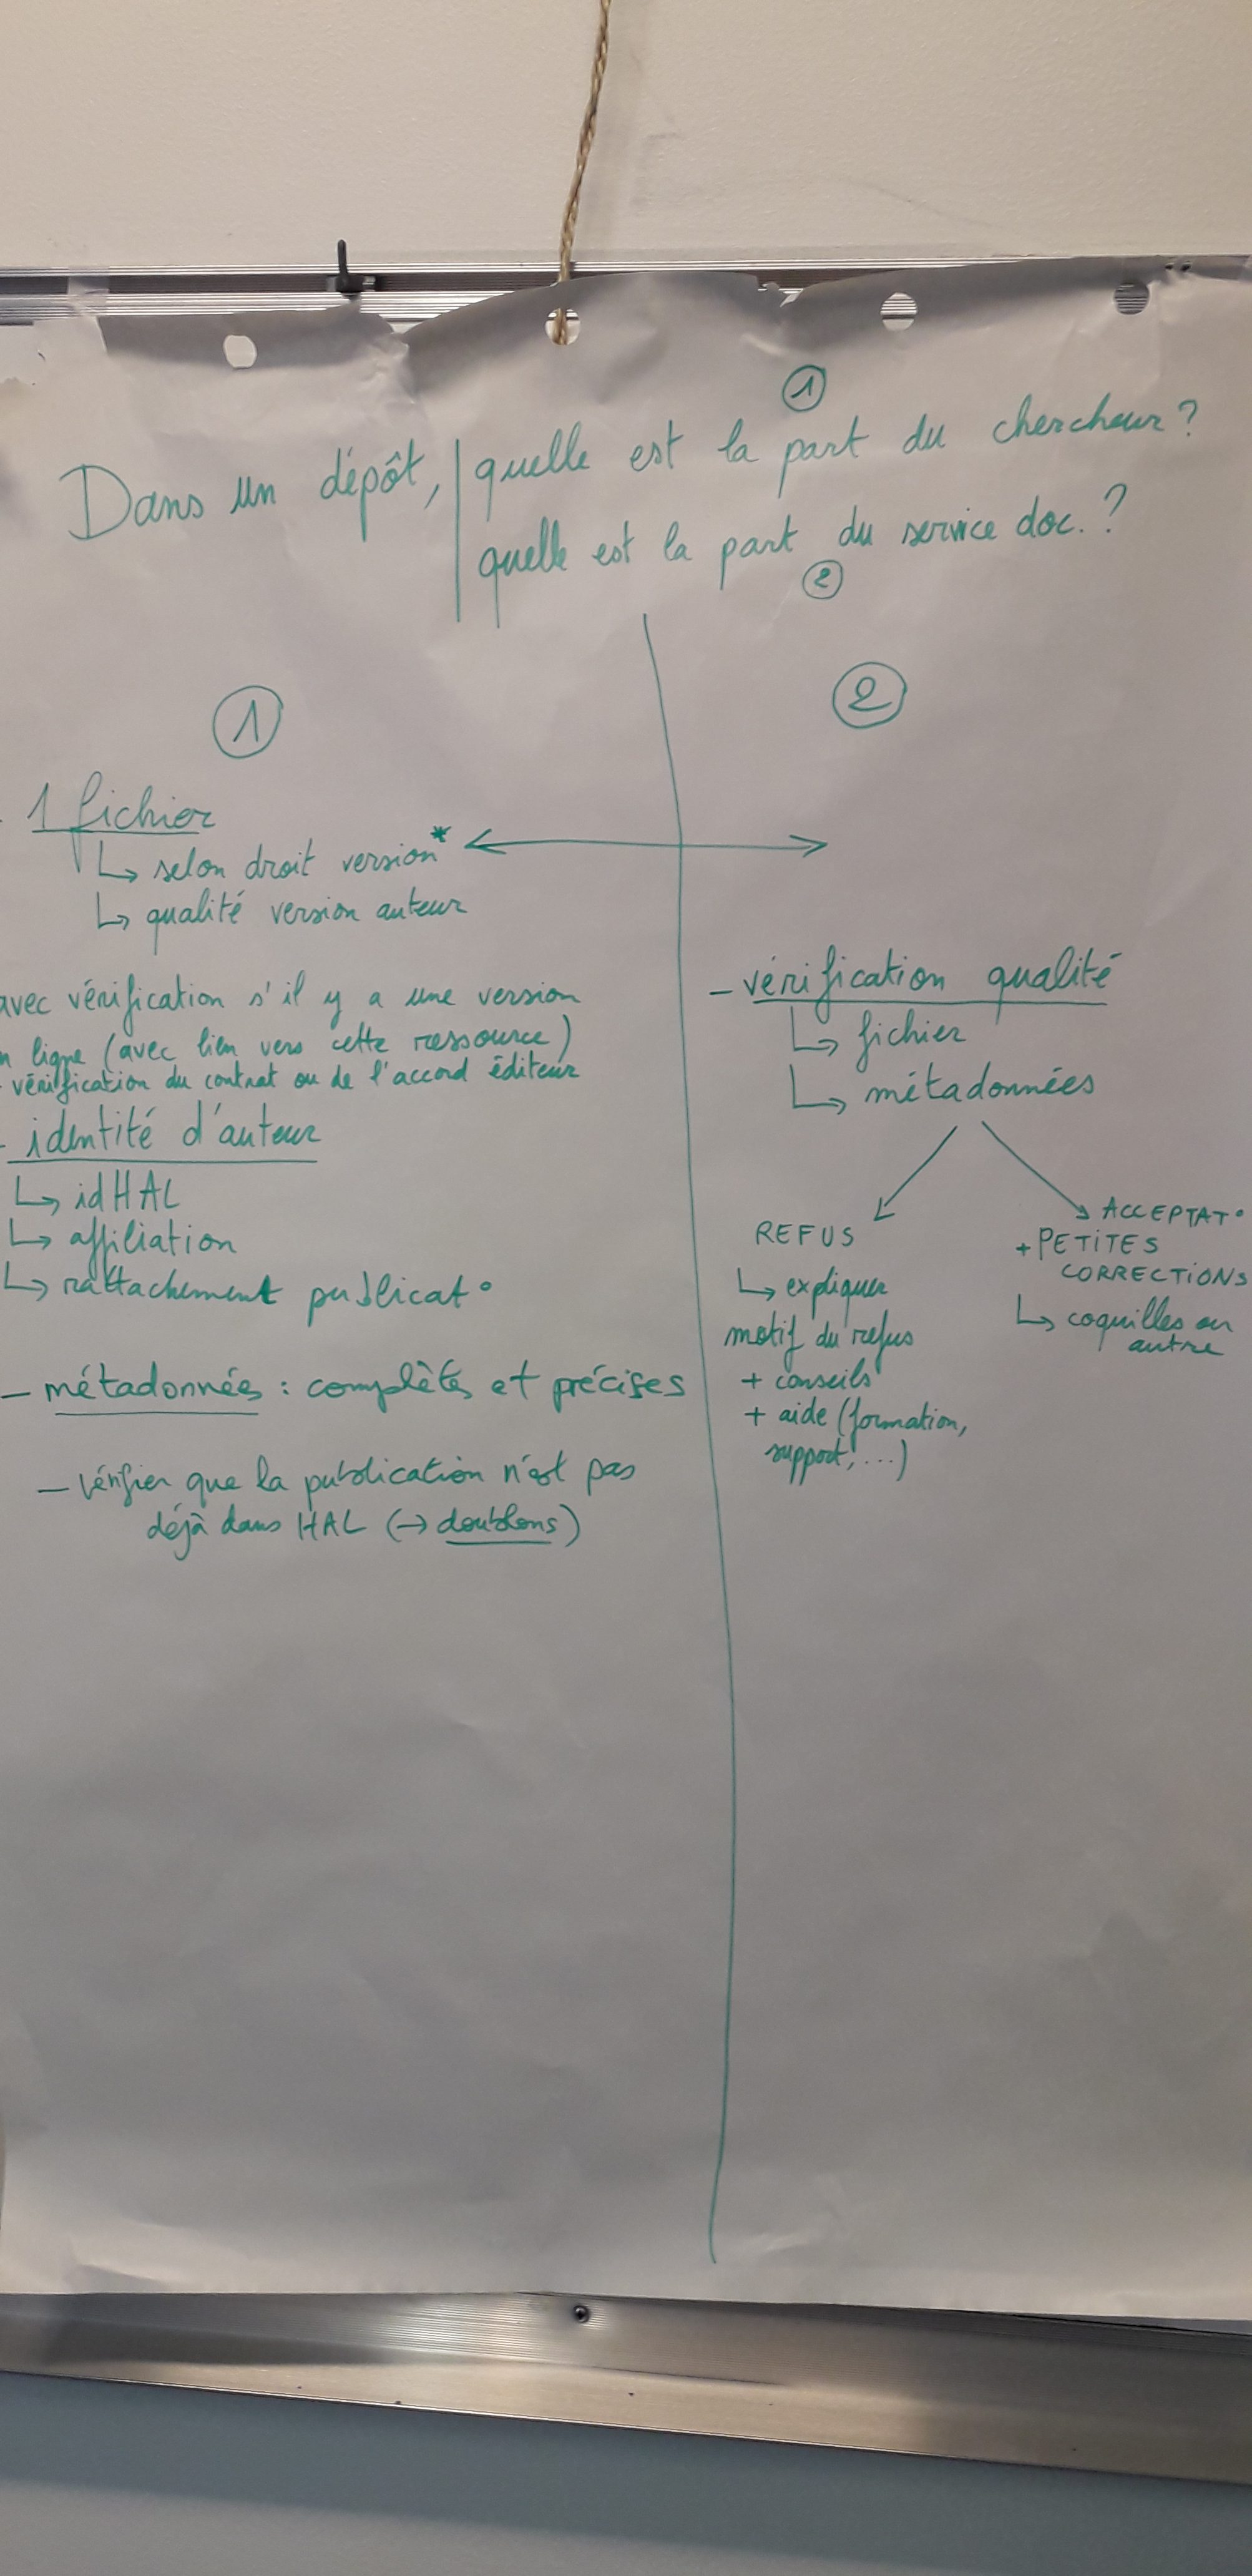 ①
Dans un dépôt, quelle est la part du chercheur ?
quelle est la part du service doc. ?
②
①
- 1 fichier
↳ selon droit version*
↳ qualité version auteur
avec vérification s'il y a une version
n ligne (avec lien vers cette ressource)
- vérification du contrat ou de l'accord éditeur
- identité d'auteur
↳ idHAL
↳ affiliation
↳ rattachement publicat°
- métadonnées : complètes et précises
- Vérifier que la publication n'est pas
déjà dans HAL (→ doublons)
②
- vérification qualité
↳ fichier
↳ métadonnées
REFUS
↳ expliquer
motif du refus
+ conseils
+ aide (formation,
support, ...)
ACCEPTAT°
+ PETITES
CORRECTIONS
↳ coquilles ou
autre